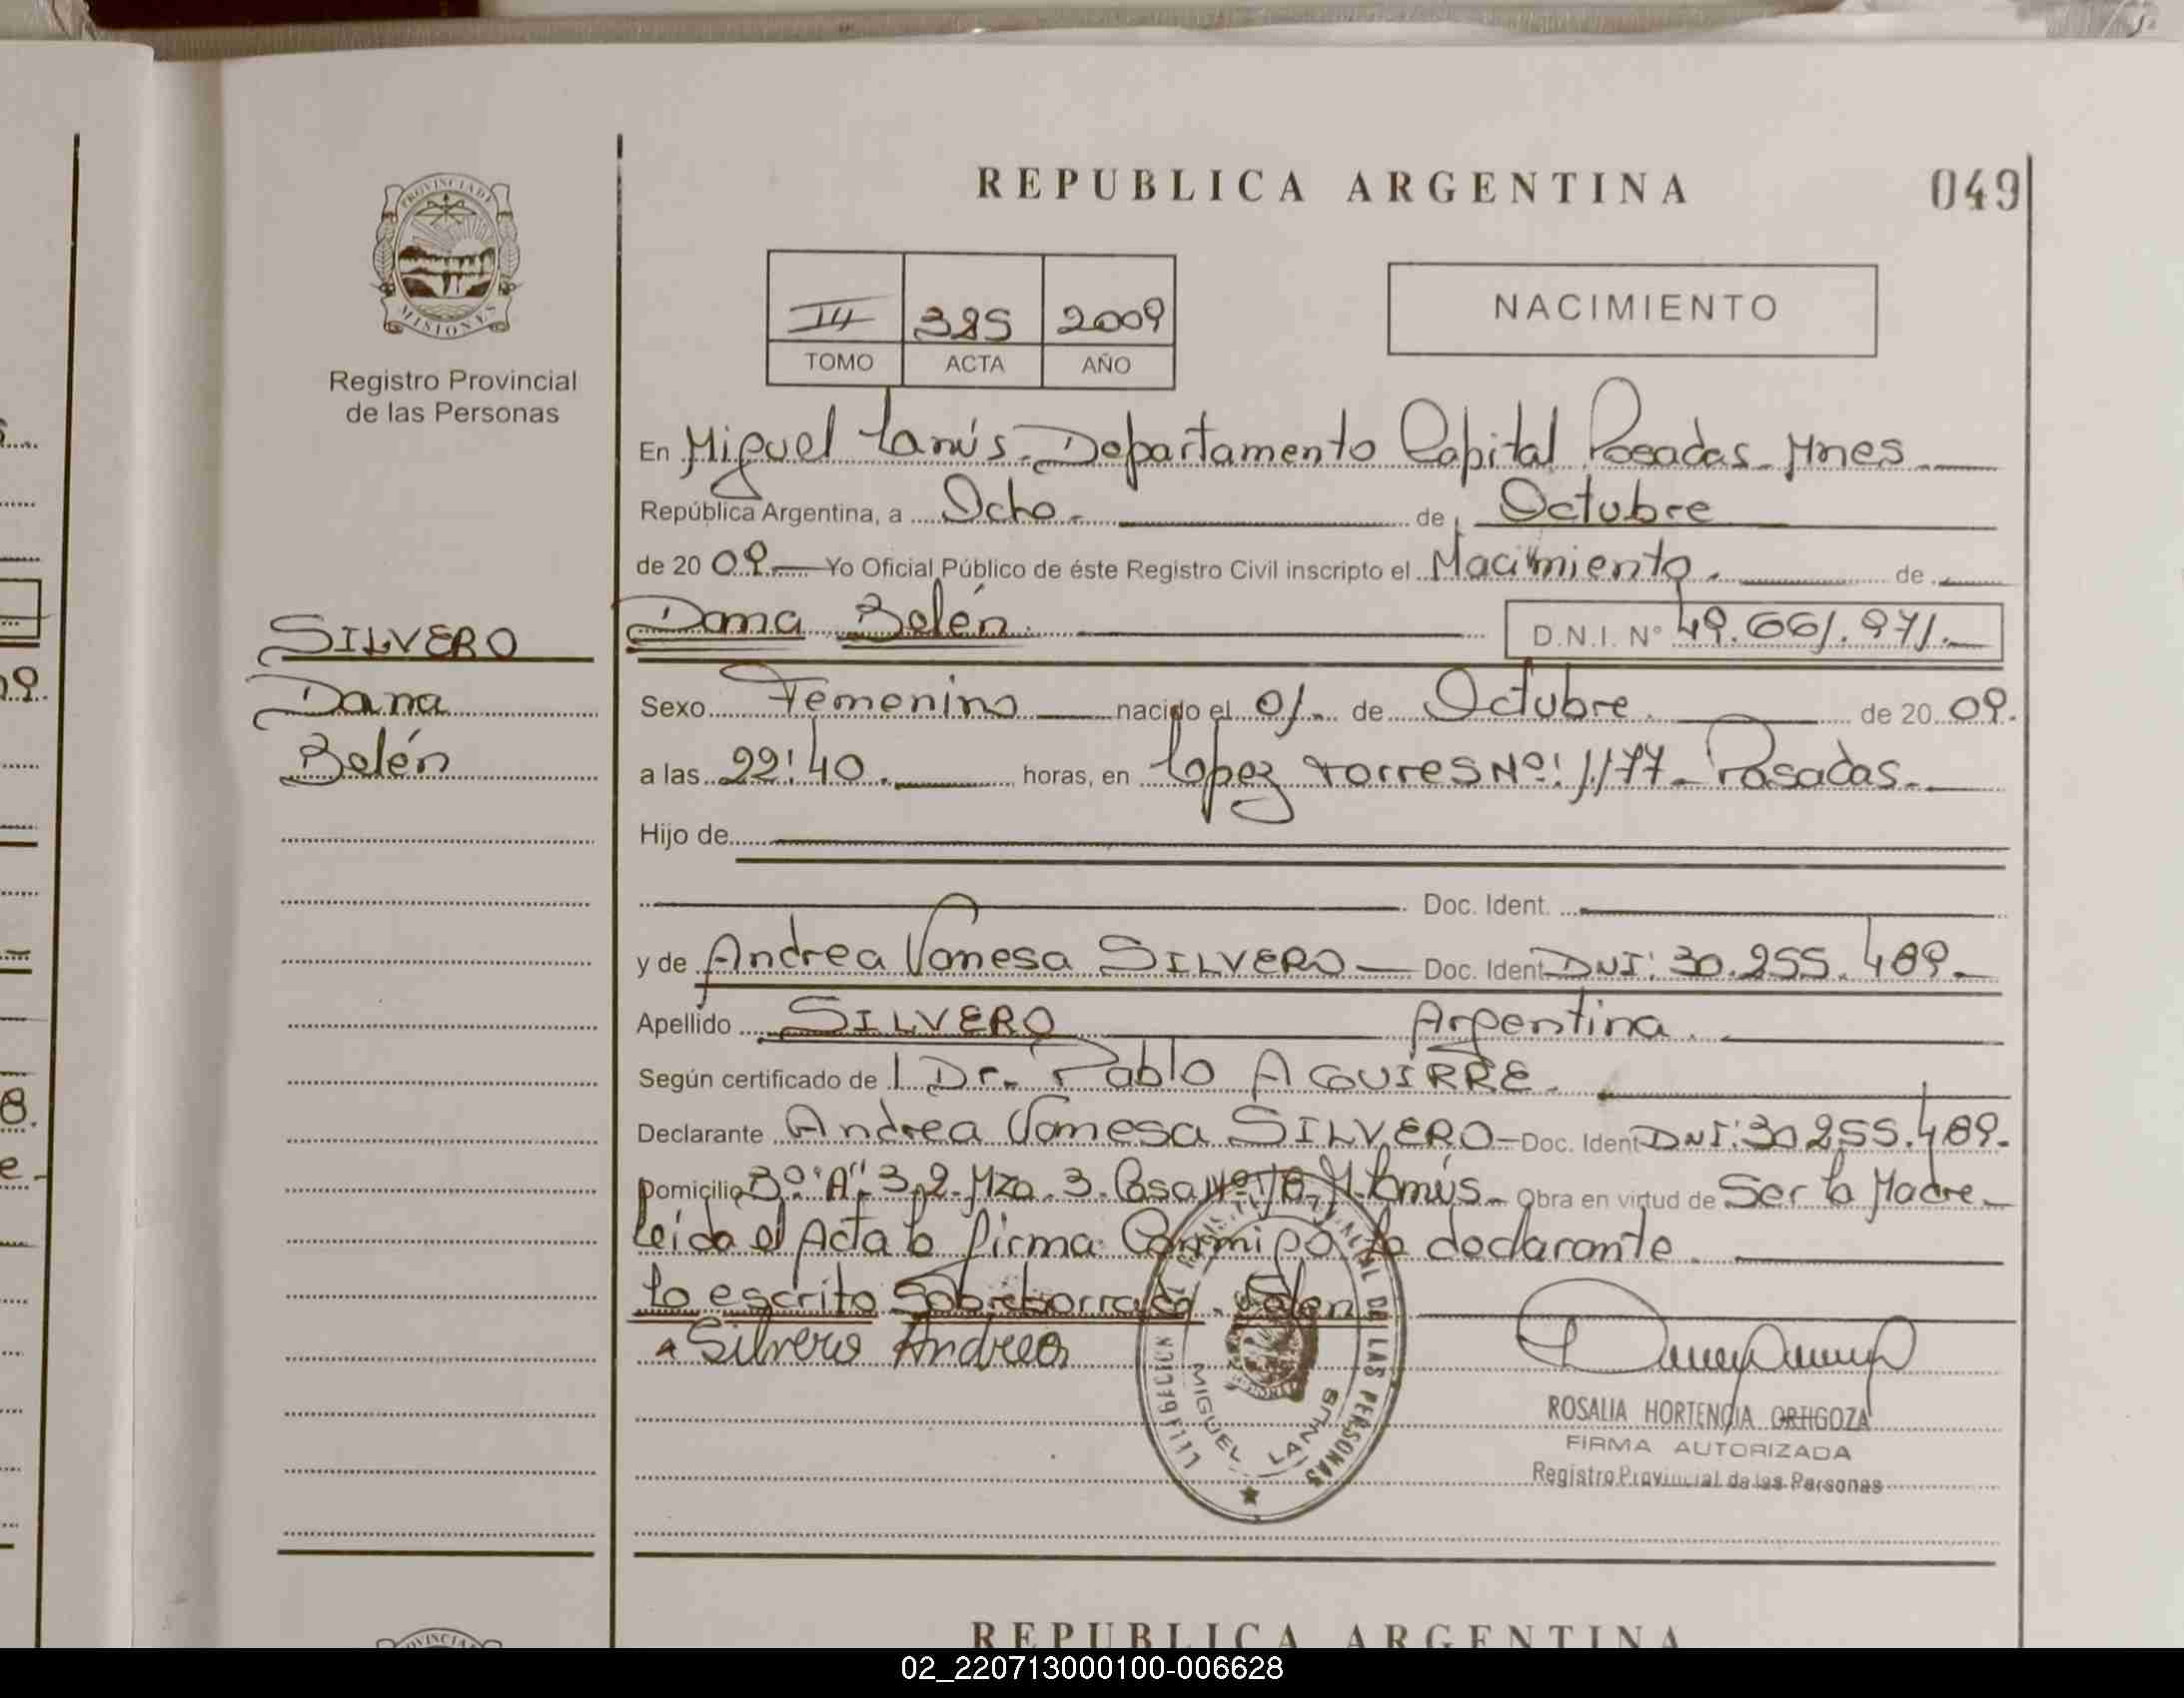 REPUBLICA ARGENTINA
049
PROVINCIA DE
MISIONES
Registro Provincial
de las Personas
III 385 2009
TOMO ACTA AÑO
NACIMIENTO
En Miguel Lanús. Departamento Capital Posadas. Mnes
República Argentina, a Ocho. de Octubre
de 20 09. Yo Oficial Público de éste Registro Civil inscripto el Nacimiento. de
Dana Belén. D.N.I. Nº 49.661.971.
SILVERO
Dana
Belén
Sexo Femenino nacido el 01. de Octubre. de 20 09.
a las 22:40. horas, en Lopez Torres Nº: 1177. Posadas.
Hijo de
Doc. Ident.
y de Andrea Vanesa SILVERO Doc. Ident DNI: 30.255.489.
Apellido SILVERO Argentina.
Según certificado de Dr. Pablo AGUIRRE.
Declarante Andrea Vanesa SILVERO Doc. Ident DNI: 30.255.489.
Domicilio Bº "A" 3,2. Mza. 3. Casa Nº M. Lanús. Obra en virtud de Ser la Madre.
Leída el Acta la firma Conmigo la declarante.
Lo escrito Sobreborrado. Belén
Silvero Andrea
DE LAS PERSONAS
MIGUEL LANUS
ROSALIA HORTENCIA ORTIGOZA
FIRMA AUTORIZADA
Registro Provincial de las Personas
REPUBLICA ARGENTINA
02_220713000100-006628